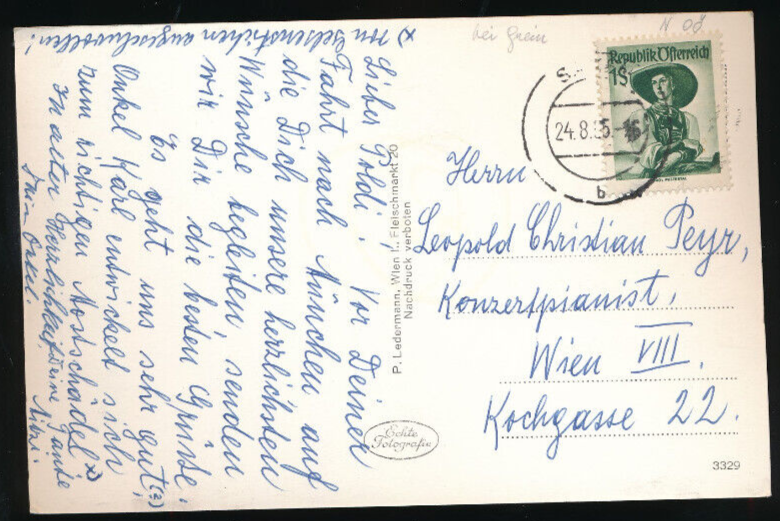 bei Grein
N 08
Republik Österreich
1S
24.8.55.-16
b
Herrn
Leopold Christian Peyr,
Konzertpianist,
Wien VIII.
Kochgasse 22.
3329
P. Ledermann, Wien I., Fleischmarkt 20
Nachdruck verboten
Echte
Fotografie
Lieber Poldi! Vor Deiner
Fahrt nach München auf
die Dich unsere herzlichsten
Wünsche begleiten, senden
wir Dir die besten Grüsse.
Es geht uns sehr gut,(?)
Onkel Karl entwickelt sich
zum richtigen Mostschädel x)
In alter Herzlichkeit Deine Tante
Mitzi.
Dein Onkel.
x) von Gelsenstichen angeschwollen!